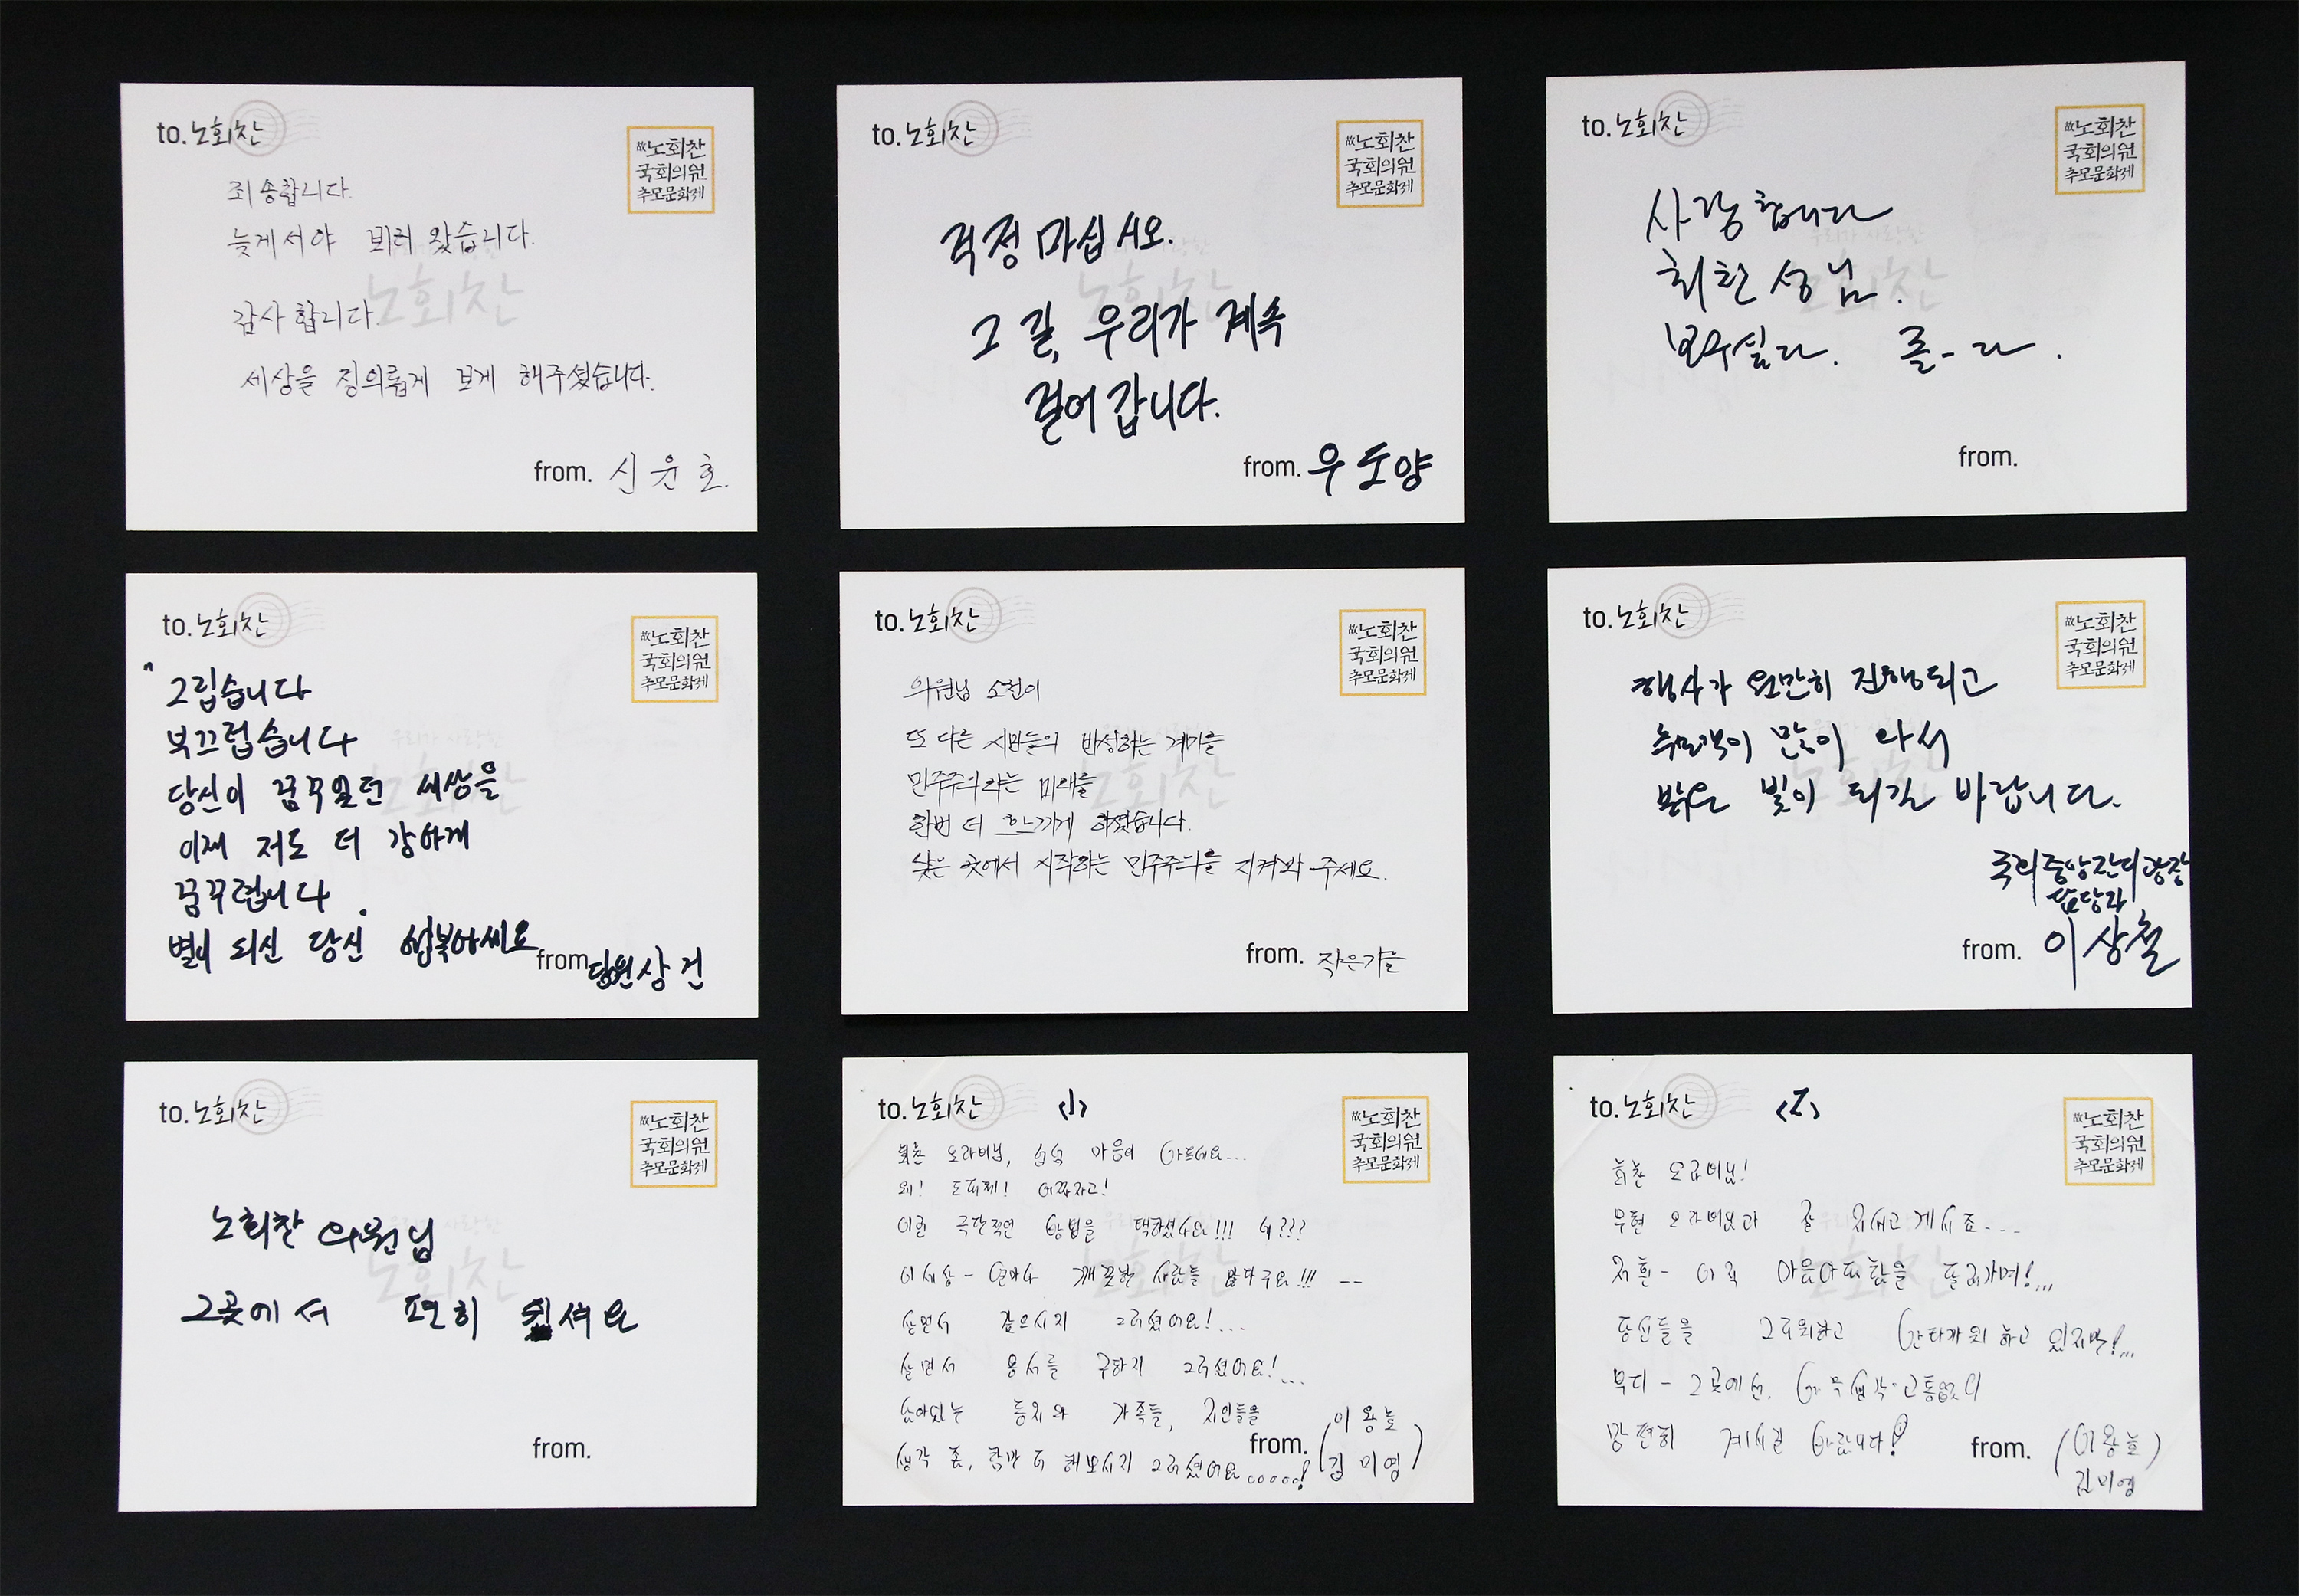 to. 노회찬
故노회찬
국회의원
추모문화제
죄송합니다.
늦게서야 뵈러 왔습니다.
감사합니다.
세상을 정의롭게 보게 해주셨습니다.
from. 신윤호.
to. 노회찬
故노회찬
국회의원
추모문화제
걱정 마십시오.
그 길, 우리가 계속
걸어 갑니다.
from. 우도양
to. 노회찬
故노회찬
국회의원
추모문화제
사랑합니다
회찬 성님.
보구싶다.
from.
to. 노회찬
故노회찬
국회의원
추모문화제
"그립습니다
부끄럽습니다
당신이 꿈꾸었던 세상을
이제 저도 더 강하게
꿈꾸렵니다.
별이 되신 당신 행복하세요
from. 당원 상건
to. 노회찬
故노회찬
국회의원
추모문화제
의원님 소천이
또 다른 시민들의 반성하는 계기를
민주주의라는 미래를
한번 더 느끼게 하셨습니다.
낮은 곳에서 시작하는 민주주의를 지켜봐 주세요.
from. 작은거들
to. 노회찬
故노회찬
국회의원
추모문화제
행사가 원만히 진행되고
추모객이 많이 와서
밝은 빛이 되길 바랍니다.
국회중앙잔디광장
담당자
from. 이상철
to. 노회찬
故노회찬
국회의원
추모문화제
노회찬 의원님
그곳에서 편히 쉬셔요
from.
to. 노회찬 <1>
故노회찬
국회의원
추모문화제
회찬 오라버님, 넘넘 마음이 아프네요...
왜! 도대체! 어쩌자고!
이런 극단적인 방법을 택하셨나요!!! 네???
이 세상- 얼마나 깨끗한 사람들 많다구요!!! --
살면서 갚으시지 그러셨어요!...
살면서 용서를 구하지 그러셨어요!...
남아있는 동지와 가족들, 지인들을
생각 좀, 한번 더 해보시지 그러셨어요.....!
from. (이용늘
김미영)
to. 노회찬 <2>
故노회찬
국회의원
추모문화제
회찬 오라버님!
무현 오라버님과 잘 지내고 계시죠...
저흰- 아직 마음아파함을 달래가며!...
당신들을 그리워하고 안타까워 하고 있지만!...
부디- 그곳에선, 아무생각·고통없이
맘 편히 계시길 바랍니다!
from. (이용늘
김미영)